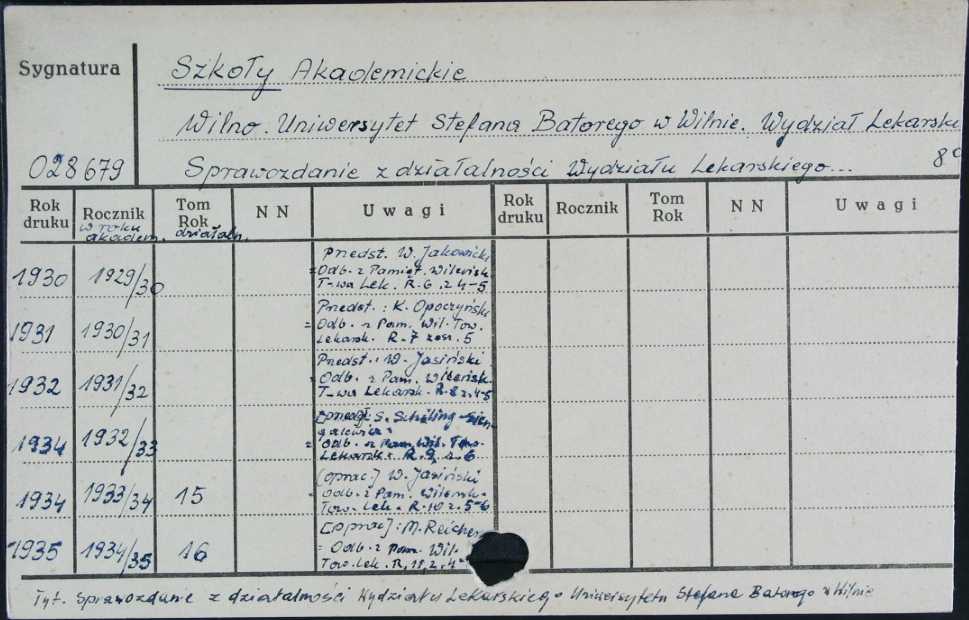 Sygnatura
Szkoły Akademickie
Wilno. Uniwersytet Stefana Batorego w Wilnie. Wydział Lekarski
028679
Sprawozdanie z działalności Wydziału Lekarskiego...
8°
Rok druku Rocznik Tom Rok N N Uwagi Rok druku Rocznik Tom Rok N N Uwagi
w roku akadem. działaln.
1930 1929/30
Przedst. W. Jakowicki
= Odb. z Pamięt. Wileńsk.
T-wa Lek. R. 6. z 4-5
1931 1930/31
Przedst.: K. Opoczyński
= Odb. z Pam. Wil. Tow.
Lekarsk. R. 7 zesz. 5
1932 1931/32
Przedst.: W. Jasiński
= Odb. z Pam. Wileńsk.
T-wa Lekarsk. R. 8 z. 4-5
1934 1932/33
S. Schilling-Siengalewicz
= Odb. z Pam. Wil. Tow.
Lekarsk. R. 9 z. 6
1934 1933/34 15
[oprac.] W. Jasiński
= Odb. z Pam. Wileńsk.
Tow. Lek. R. 10 z. 5-6
1935 1934/35 16
[oprac]: M. Reicher
= Odb. z Pam. Wil.
Tow. Lek. R. 11, z. 4-
Tyt. Sprawozdanie z działalności Wydziału Lekarskiego Uniwersytetu Stefana Batorego w Wilnie